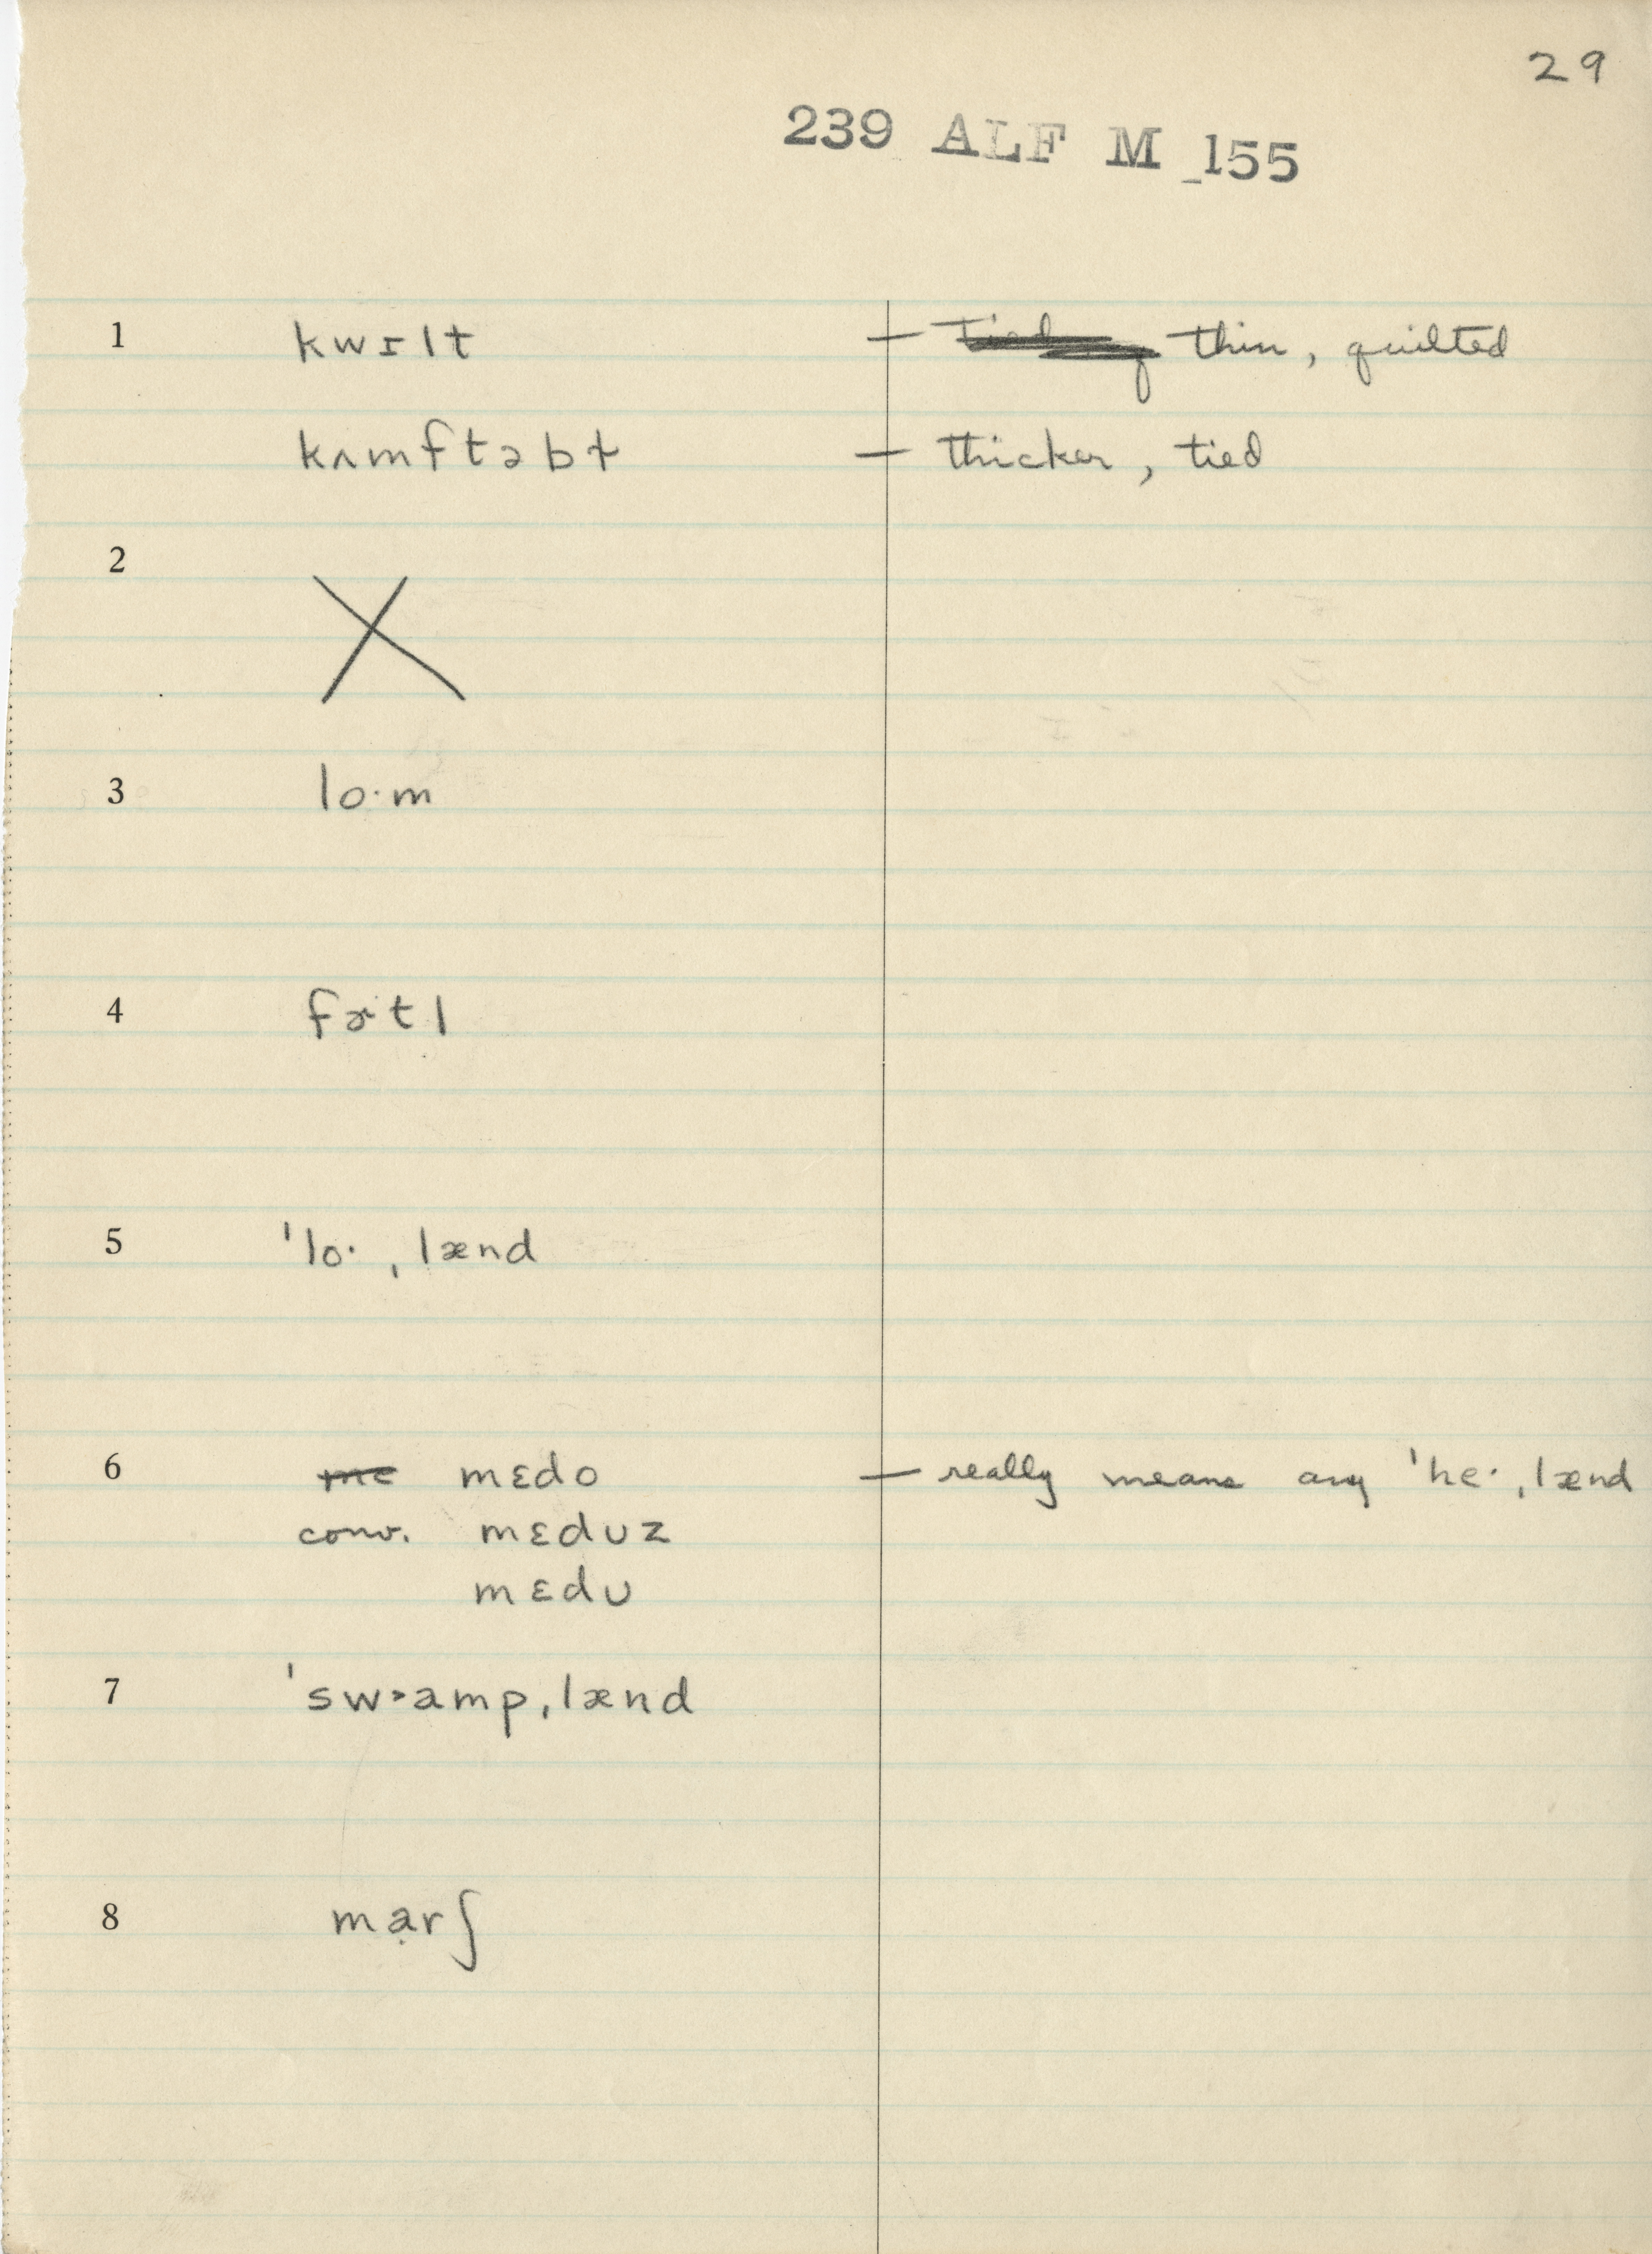 29
239 ALF M 155
1 kwɪlt — thin, quilted
kʌmftəbɫ — thicker, tied
2
3 lo·m
4 fɚtl
5 ˈlo· ˌlænd
6 mɛdo — really means any ˈhe· ˌlænd
conv. mɛdʊz
mɛdʊ
7 ˈsw˃amp ˌlænd
8 mạrʃ